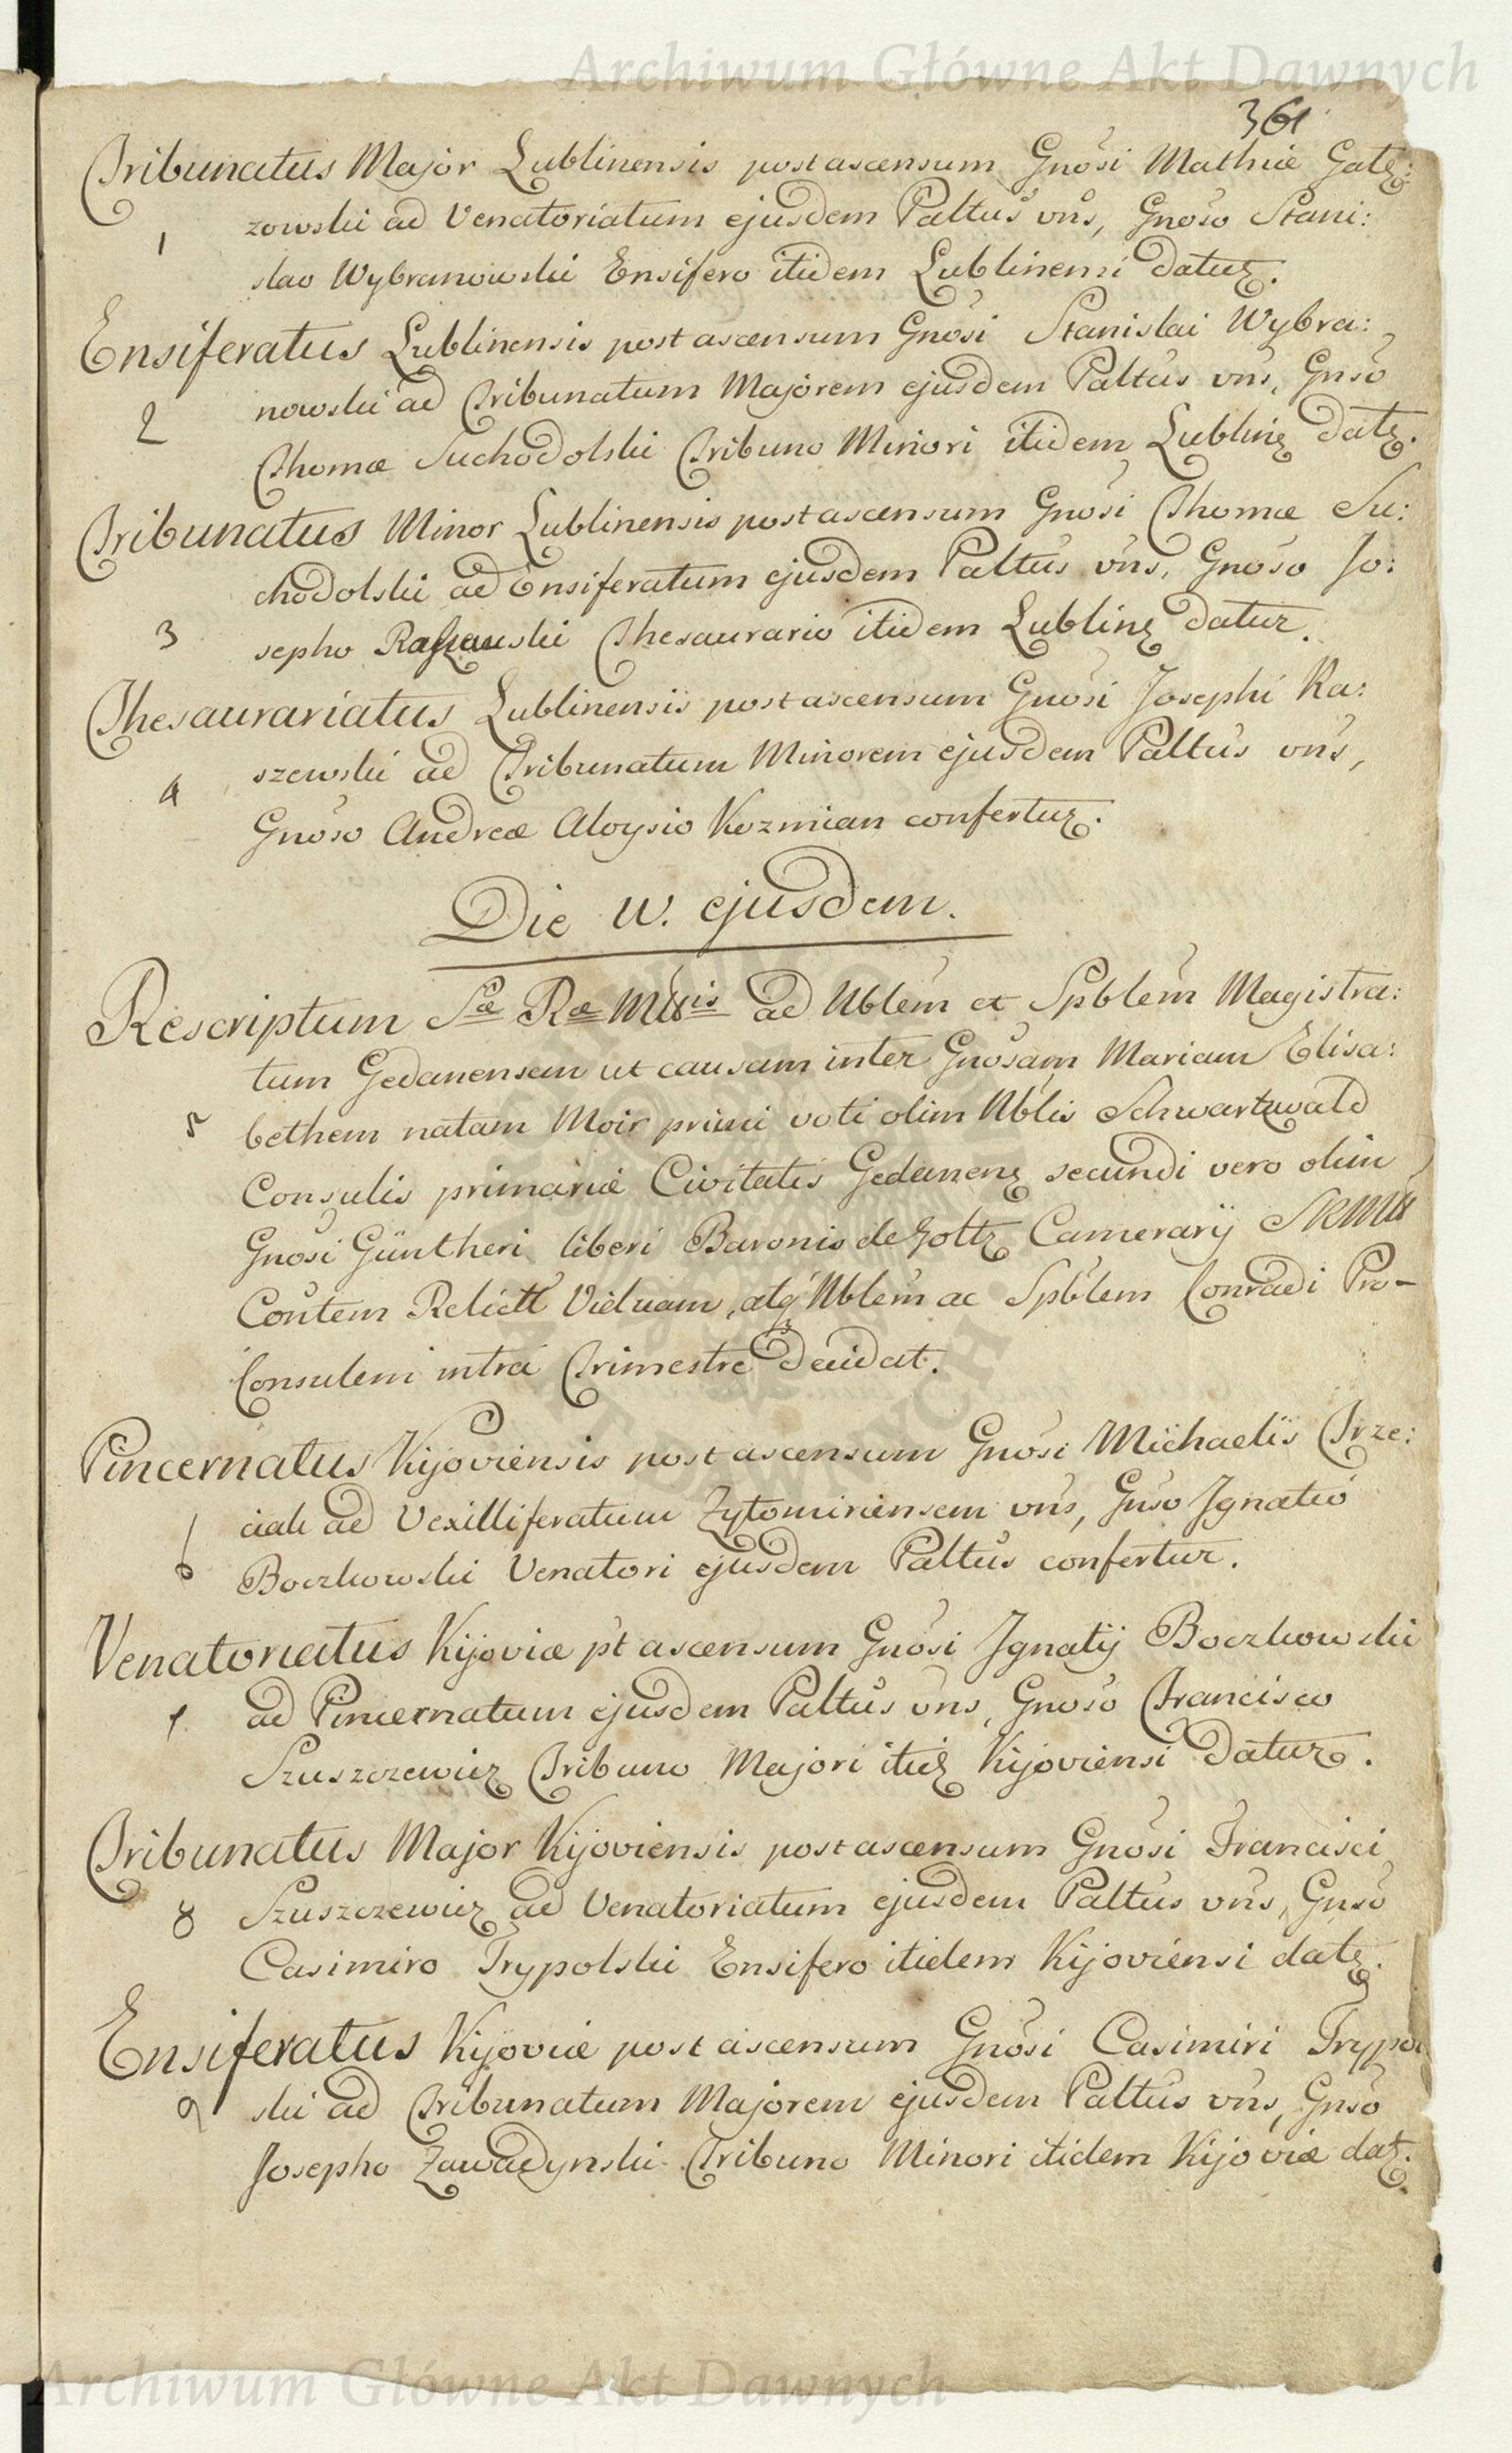 Archiwum Główne Akt Dawnych
361
Tribunatus Major Lublinensis post ascensum Gnosi Mathiæ Gałę:
1 zowski ad Venatoriatum ejusdem Paltus vns, Gnoso Stani:
slao Wybranowski Ensifero itidem Lublinensi datur.
Ensiferatus Lublinensis post ascensum Gnosi Stanislai Wybra:
2 nowski ad Tribunatum Majorem ejusdem Paltus vns, Gnso
Thomæ Suchodolski Tribuno Minori itidem Lublin datr.
Tribunatus Minor Lublinensis post ascensum Gnosi Thomæ Su:
chodolski ad Ensiferatum ejusdem Paltus vns, Gnoso Jo:
3 sepho Raszewski Thesaurario itidem Lublin datur.
Thesaurariatus Lublinensis post ascensum Gnosi Josephi Ra:
4 szewski ad Tribunatum Minorem ejusdem Paltus vns,
Gnoso Andreæ Aloysio Kozmian confertur.
Die ejusdem.
Rescriptum Sæ Ræ Mttis ad Nblem et Spblem Magistra:
tum Gedanensem ut causam inter Gnosam Mariam Elisa:
5 bethem natam Moir primi voti olim Nblis Schwartzwald
Consulis primariæ Civitatis Gedanen secundi vero olim
Gnosi Güntheri liberi Baronis de Goltz Camerarij SRMtt
Contem Relictt Viduam, atq Nblem ac Spblem Conradi Pro-
Consulem intra Trimestre decidat.
Pincernatus Kijoviensis post ascensum Gnosi Michaelis Trze:
ciak ad Vexilliferatum Zytomiriensem vns, Gnso Ignatio
6 Boczkowski Venatori ejusdem Paltus confertur.
Venatoriatus Kijoviæ pt ascensum Gnosi Ignatij Boczkowski
7 ad Pincernatum ejusdem Paltus vns, Gnoso Francisco
Szuszczewicz Tribuno Majori itid Kijoviensi datur.
Tribunatus Major Kijoviensis post ascensum Gnosi Francisci
8 Szuszczewicz ad Venatoriatum ejusdem Paltus vns, Gnso
Casimiro Trypolski Ensifero itidem Kijoviensi datr.
Ensiferatus Kijoviæ post ascensum Gnosi Casimiri Trypol
9 ski ad Tribunatum Majorem ejusdem Paltus vns, Gnso
Josepho Zawadynski Tribuno Minori itidem Kijoviæ datr.
Archiwum Główne Akt Dawnych